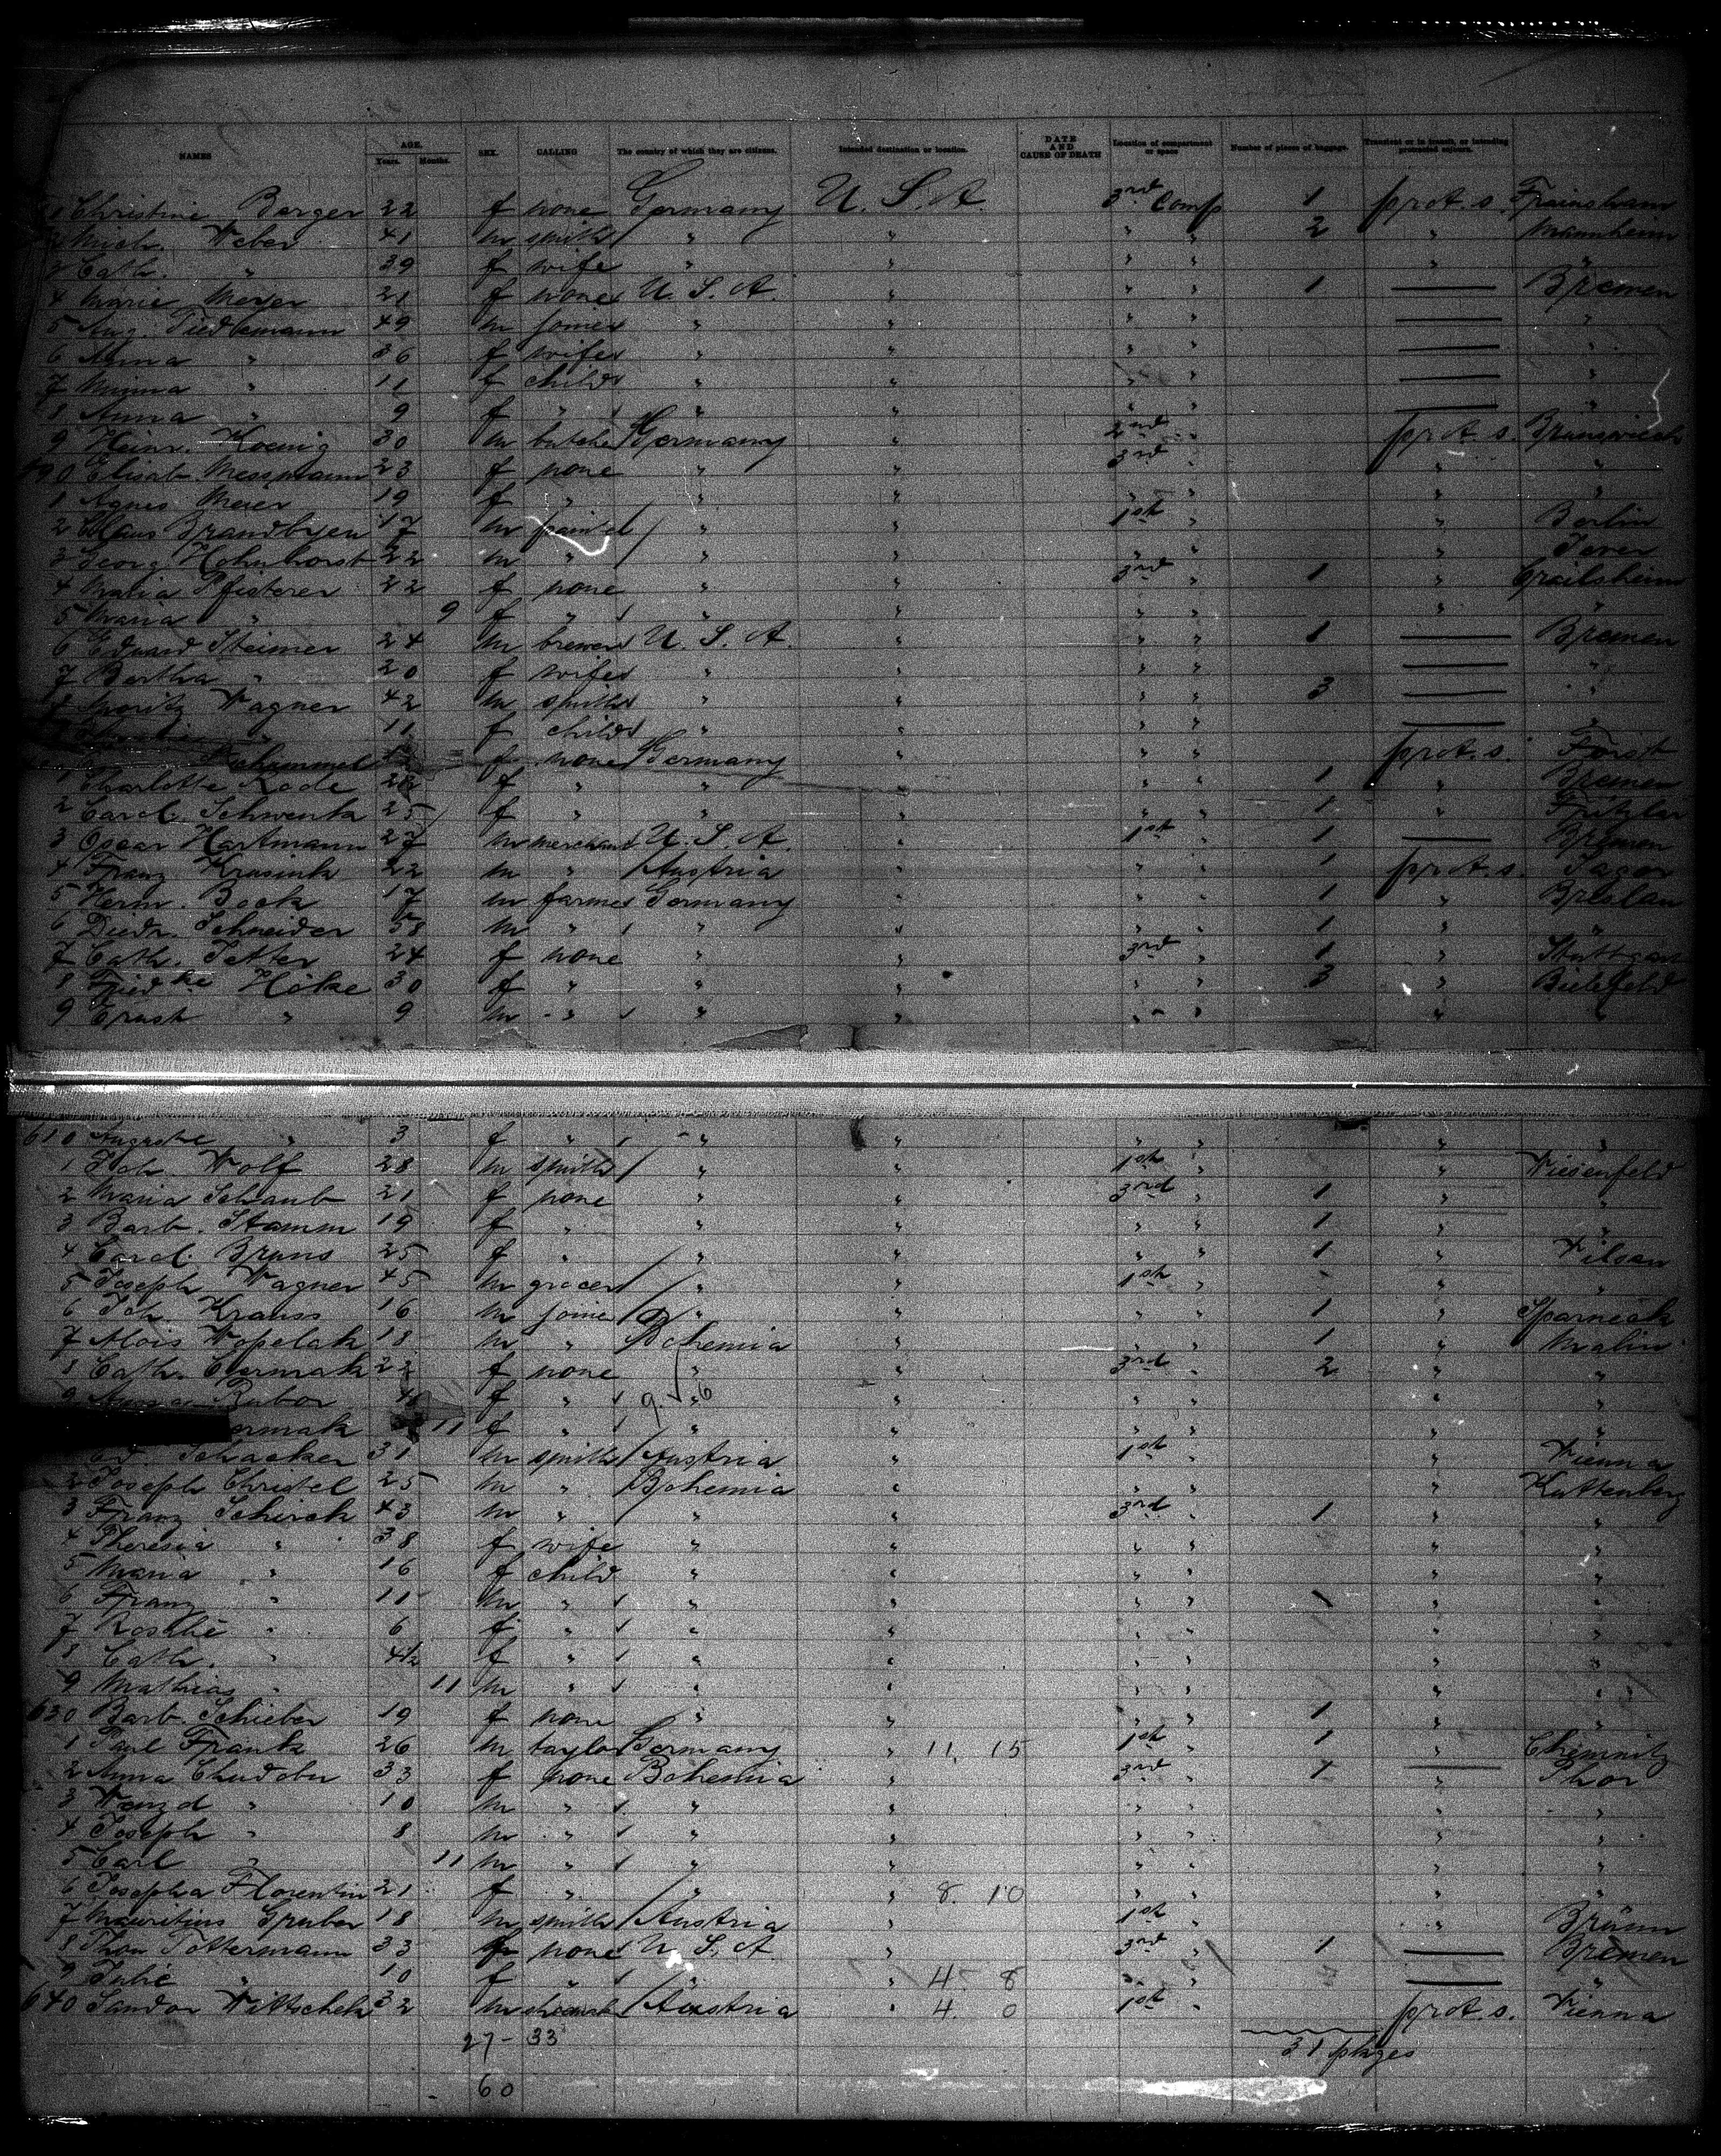 NAMES AGE. Years. Months. SEX. CALLING The country of which they are citizens. Intended destination or location. DATE AND CAUSE OF DEATH Location of compartment or space Number of pieces of baggage. Transient or in transit, or intending protracted sojourn.
1 Christine Berger 22 f none Germany U. S. A. 3rd Comp 1 prot. s.
2 Mich. Weber 41 m smith " " " " 2 " Mannheim
3 Cath. " 39 f wife " " " " " "
4 Marie Meyer 21 f none U. S. A. " " " 1 — Bremen
5 Aug. Tiedemann 49 m joiner " " " " — "
6 Anna " 36 f wife " " " " — "
7 Minna " 11 f child " " " " — "
8 Anna " 9 f " " " " " — "
9 Heinr. Koenig 30 m butcher Germany " 2nd " prot. s.
Elisab. Messmann 23 f none " " 3rd " " "
1 Agnes Meier 19 f " " " " " " "
2 Claus Brandbyen 17 m " " 1st " " Berlin
3 Georg Hohnhorst 22 m " " " " " " Jever
4 Maria Pfisterer 22 f none " " 3rd " 1 " Crailsheim
5 Maria " 9 f " " " " " " "
6 Eduard Steimer 24 m brewer U. S. A. " " " 1 — Bremen
7 Bertha " 20 f wife " " " " — "
8 Moritz Wagner 42 m smith " " " " 3 — "
" 11 f child " " " " — "
Schimmel f none Germany " " prot. s. Forst
1 Charlotte Rode 28 f " " " " " 1 " Bremen
2 Carol. Schwenk 25 f " " " " " 1 " Fritzlar
3 Oscar Hartmann 27 m merchant U. S. A. " 1st " 1 — Bremen
4 Franz 22 m " Austria " " " 1 prot. s.
5 Herm. Bock 17 m farmer Germany " " " 1 " Breslau
6 Diedr. Schneider 58 m " " " " " 1 " "
7 Cath. Tetter 24 f none " " 3rd " 1 " Stuttgart
8 Friedke Höke 30 f " " " " " 3 " Bielefeld
9 Ernst " 9 m " " " " " " "
610 Auguste " 3 f " " " " " " "
1 Joh. Wolf 28 m smith " " 1st " " Wiesenfeld
2 Maria Schaub 21 f none " " 3rd " 1 " "
3 Barb. Stamm 19 f " " " " " 1 " "
4 Carol. Bruns 25 f " " " " " 1 " Vilsen
5 Joseph Wagner 45 m grocer " " 1st " " "
6 Joh. Krauss 16 m joiner " " " " 1 " Sparneck
7 Alois Wopelak 18 m " Bohemia " " " 1 " Malin
8 Cath. Cermak 22 f none " " 3rd " 2 " "
9 Anna Rubor 4 f " " " " " " "
ermak 11 f " " " " " " "
Ed. Schacker 31 m smith Austria " 1st " " Vienna
2 Joseph Christel 25 m " Bohemia " " " " Kuttenberg
3 Franz Schirck 43 m " " " 3rd " 1 " "
4 Theresia " 38 f wife " " " " " "
5 Maria " 16 f child " " " " " "
6 Franz " 11 m " " " " " 1 " "
7 Rosalie " 6 f " " " " " " "
8 Cath. " 4½ f " " " " " " "
9 Mathias " 11 m " " " " " " "
630 Barb. Schieber 19 f none " " " " 1 " "
1 Paul Frank 26 m taylor Germany " 11. 15 1st " 1 " Chemnitz
2 Anna Chudoba 33 f none Bohemia " 3rd " 1 "
3 " 10 m " " " " " " "
4 Joseph " 8 m " " " " " " "
5 Carl " 11 m " " " " " " "
6 Josepha Florentin 21 f " " " 8. 10 " " " "
7 Mauritius Gruber 18 m smith Austria " 1st " " Brünn
8 Tottermann 33 f none U. S. A " 3rd " 1 — Bremen
9 Julie " 10 f " " " 4. 8 " " — "
640 Sandor Wittschek 32 m Austria " 4. 0 1st " prot. s. Vienna
27 - 33 31 pkges
60